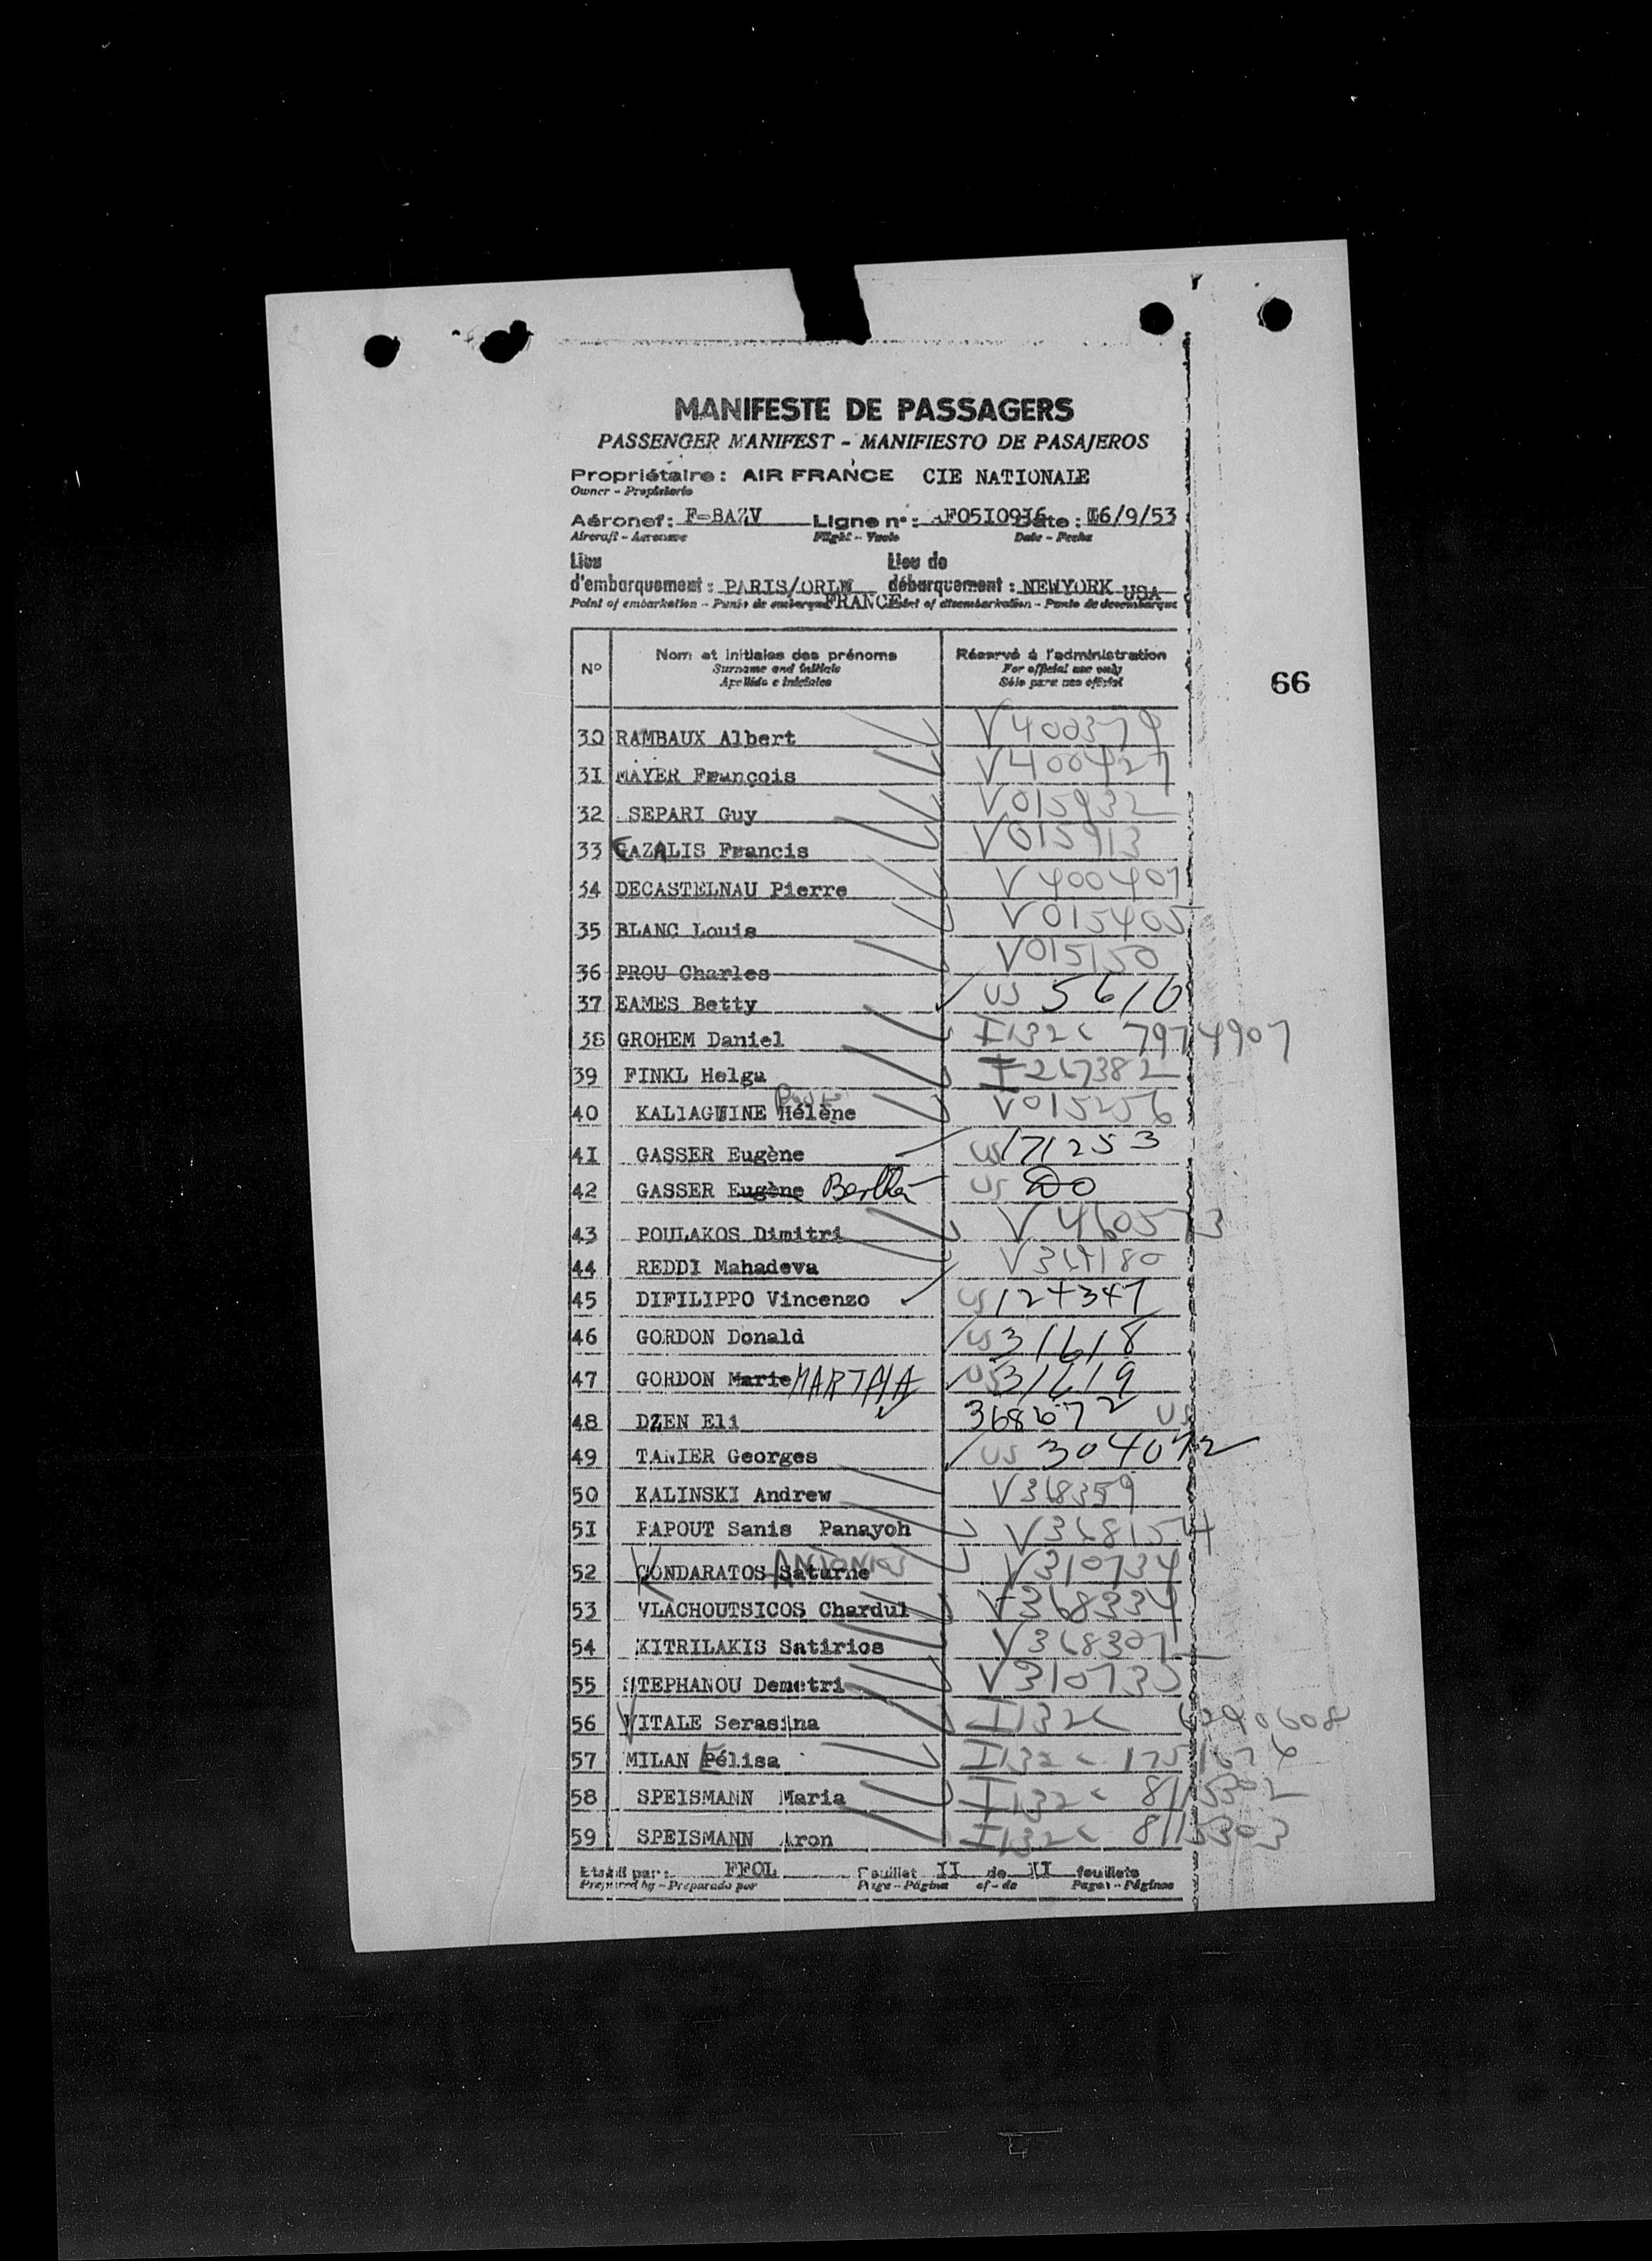 MANIFESTE DE PASSAGERS
PASSENGER MANIFEST - MANIFIESTO DE PASAJEROS
Propriétaire : AIR FRANCE CIE NATIONALE
Owner - Propietario
Aéronef : F-BAZV Ligne n° : AF05I09I6 Date : I6/9/53
Aircraft - Aeronave Flight - Vuelo Date - Fecha
Lieu d'embarquement : PARIS/ORLY FRANCE Lieu de débarquement : NEWYORK USA
Point of embarkation - Punto de embarque Point of disembarkation - Punto de desembarque
N° Nom et initiales des prénoms Réservé à l'administration
Surname and initials For official use only
Apellido e iniciales Sólo para uso oficial
66
30 RAMBAUX Albert V400379
3I MAYER François V400427
32 SEPARI Guy V015932
33 CAZALIS Francis V015913
34 DECASTELNAU Pierre V400407
35 BLANC Louis V015405
36 PROU Charles V015150
37 EAMES Betty US 5610
38 GROHEM Daniel I132c 7974907
39 FINKL Helga I267382
40 KALIAGUINE Hélène V015256
4I GASSER Eugène US 171253
42 GASSER Eugène Bertha US DO
43 POULAKOS Dimitri V460573
44 REDDI Mahadeva V364180
45 DIFILIPPO Vincenzo US 124347
46 GORDON Donald US 31618
47 GORDON Marie MARTHA US 31619
48 DZEN Eli 368672 US
49 TANIER Georges US 304072
50 KALINSKI Andrew V368359
5I PAPOUT Sanis Panayoh V368154
52 CONDARATOS Saturne ANTONIOS V310734
53 VLACHOUTSICOS Chardul V368334
54 KITRILAKIS Satirios V368307
55 STEPHANOU Demetri V310735
56 VITALE Serasina I132c
57 MILAN Félisa I132c
58 SPEISMANN Maria I132c 8115302
59 SPEISMANN Aron I132c 8115303
Etabli par : FFOL Feuillet II de II feuillets
Prepared by - Preparado por Page - Página of - de Pages - Páginas